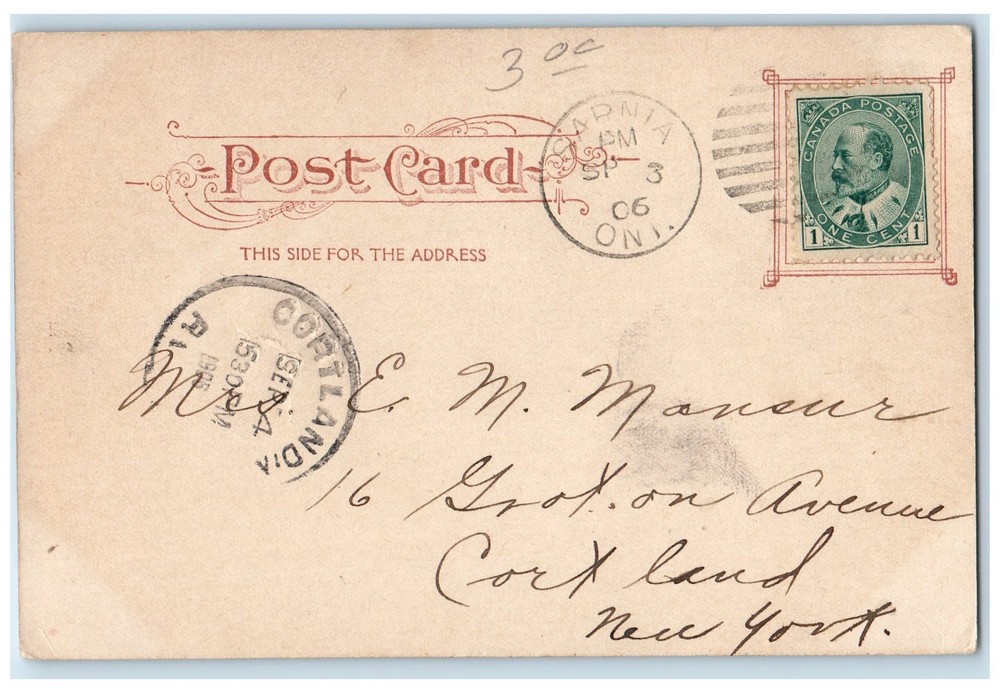 3 00
Post Card
THIS SIDE FOR THE ADDRESS
SARNIA
PM
SP 3
06
ONT.
CANADA POSTAGE
1 ONE CENT 1
CORTLAND
SEP 4
530 PM
Mrs E. M. Mansur
16 Groton Avenue
Cortland
New York.